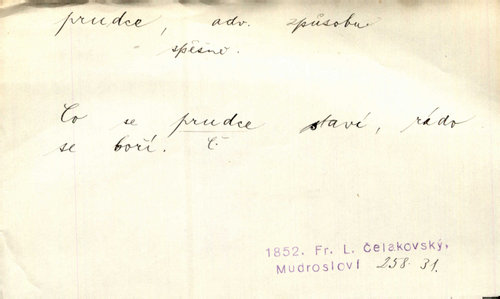 prudce, adv. způsobu
spěšně.
Co se prudce staví, rádo
se boří. Č.
1852. Fr. L. Čelakovský,
Mudrosloví 258. 31.